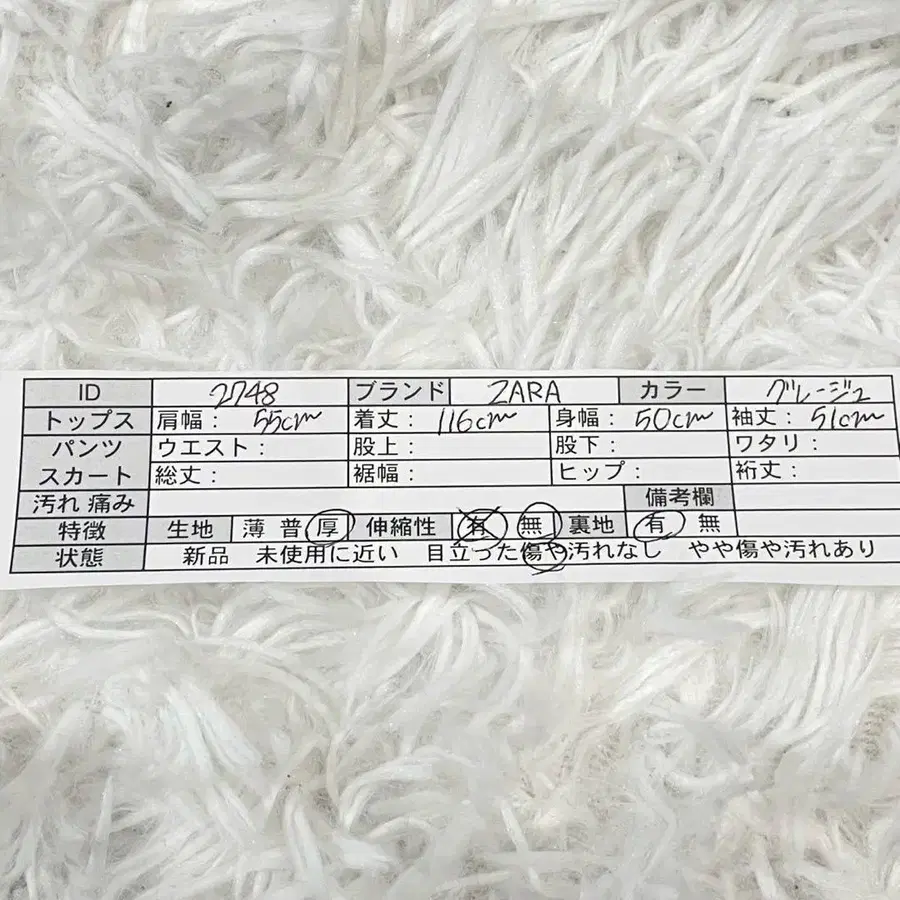 ID 2748 ブランド ZARA カラー グレージュ
トップス 肩幅： 55cm 着丈： 116cm 身幅： 50cm 袖丈： 51cm
パンツ ウエスト： 股上： 股下： ワタリ：
スカート 総丈： 裾幅： ヒップ： 裄丈：
汚れ 痛み 備考欄
特徴 生地 薄 普 厚 伸縮性 有 無 裏地 有 無
状態 新品 未使用に近い 目立った傷や汚れなし やや傷や汚れあり